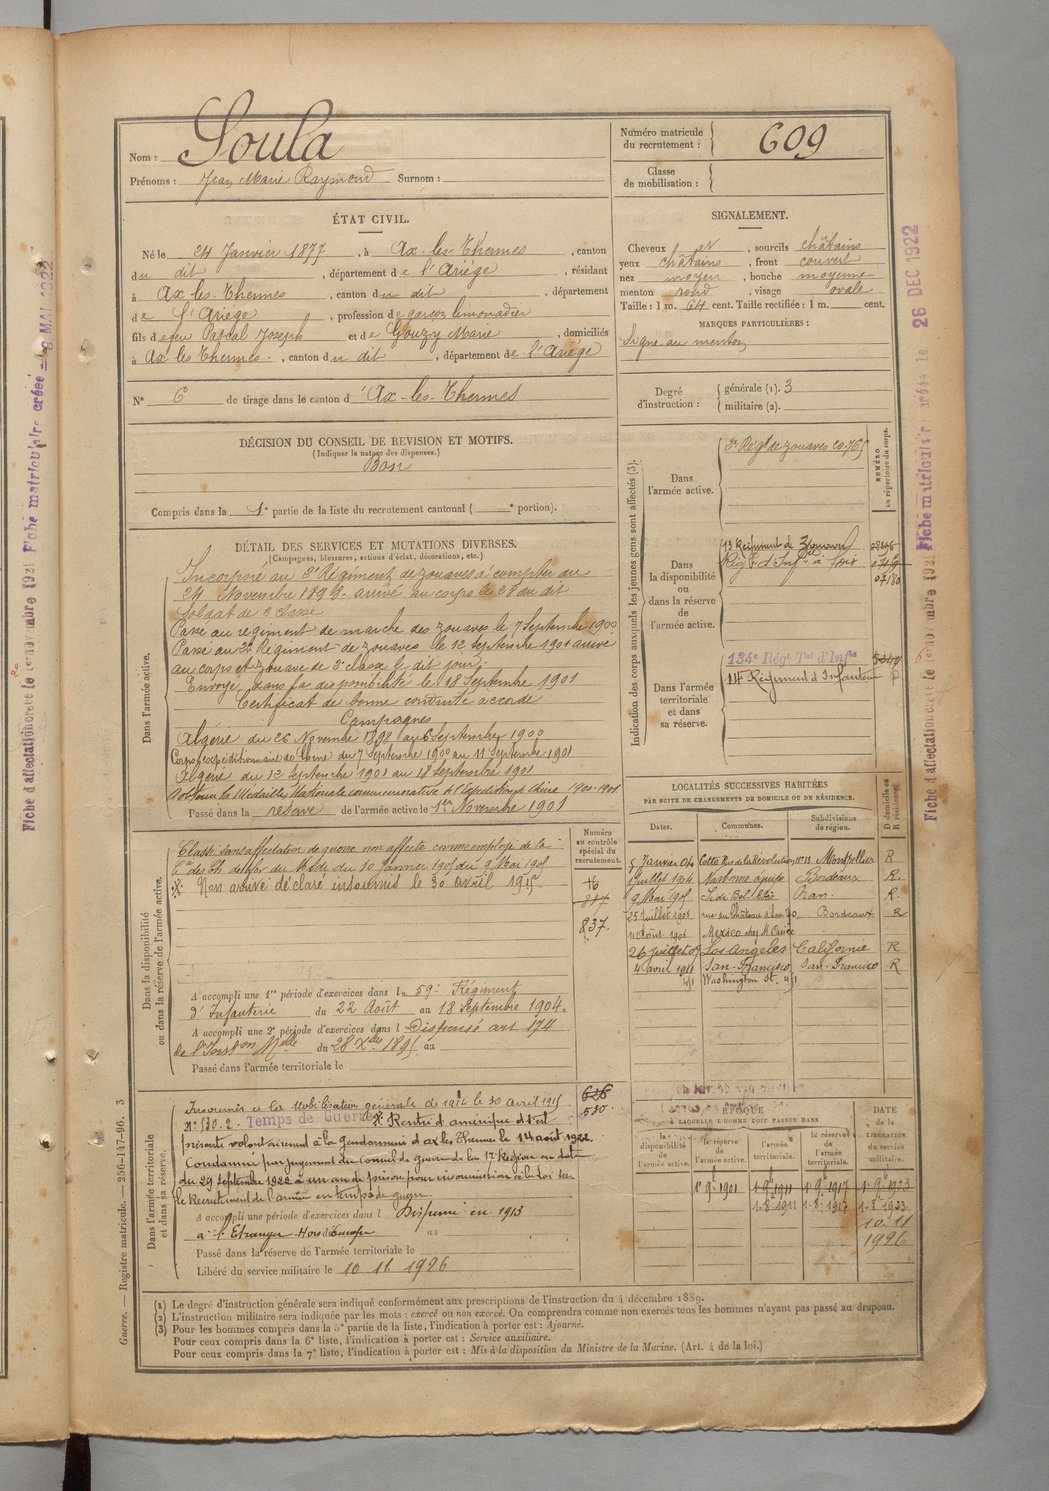 Nom : Soula
Prénoms : Jean Marie Raymond Surnom :
Numéro matricule du recrutement : 609
Classe de mobilisation :
ÉTAT CIVIL.
Né le 24 Janvier 1877, à Ax-les-Thermes, canton
du dit, département de l'Ariège, résidant
à Ax-les-Thermes, canton du dit, département
de l'Ariège, profession de garçon limonadier
fils de feu Pascal Joseph et de Gouzy Marie, domiciliés
à Ax les Thermes, canton du dit, département de l'Ariège
N° 6 de tirage dans le canton d'Ax-les-Thermes
SIGNALEMENT.
Cheveux et, sourcils châtains
yeux châtains, front couvert
nez moyen, bouche moyenne
menton rond, visage ovale
Taille : 1 m. 64 cent. Taille rectifiée : 1 m. cent.
MARQUES PARTICULIÈRES :
Signe au menton
Degré d'instruction : générale (1). 3
militaire (2).
DÉCISION DU CONSEIL DE REVISION ET MOTIFS.
(Indiquer la nature des dispenses.)
Bon
Compris dans la 1e partie de la liste du recrutement cantonal ( e portion).
DÉTAIL DES SERVICES ET MUTATIONS DIVERSES.
(Campagnes, blessures, actions d'éclat, décorations, etc.)
Dans l'armée active.
Incorporé au 3e Régiment de zouaves à compter du
24 Novembre 1898 arrivé au corps le 28 du dit
Soldat de 2 classe
Passé au régiment de marche des zouaves le 7 Septembre 1900
Passé au 3e Regiment de zouaves le 12 Septembre 1901 arrivé
au corps et zouave de 2e classe le dit jour.
Envoyé dans la disponibilité le 18 Septembre 1901
Certificat de bonne conduite accordé
Campagnes
Algérie du 26 Novembre 1898 au 6 Septembre 1900
Corps expéditionnaire de Chine du 7 Septembre 1900 au 11 Septembre 1901
Algérie du 12 Septembre 1901 au 18 Septembre 1901
a obtenu la Médaille Nationale commémorative de l'Expédition de Chine 1900-1901
Passé dans la réserve de l'armée active le 1er Novembre 1901
Indication des corps auxquels les jeunes gens sont affectés (3).
NUMÉRO au répertoire du corps.
Dans l'armée active.
3e Régt de zouaves
Dans la disponibilité ou dans la réserve de l'armée active.
Régt d'Infie à Foix
Dans l'armée territoriale et dans sa réserve.
134e Rég Tal d'Infie
Régiment d'Infanterie
LOCALITÉS SUCCESSIVES HABITÉES
PAR SUITE DE CHANGEMENTS DE DOMICILE OU DE RÉSIDENCE.
Dates. Communes. Subdivisions de région. D domicile ou R résidence.
5 Janvier 04 Cette Rue de la Révolution n° 13 Montpellier R
1 Juillet 1904 Bordeaux R.
9 Mai 1905 Sidi Bel Abbès Oran. R.
25 Juillet 1905 rue du Château d'Eau 70 Bordeaux R
11 Août 1906 Mexico chez M.
26 Juillet 09 Los Angeles Californie R
4 avril 1911 San-Francisco San-Francisco R
Washington St. 411
Dans la disponibilité ou dans la réserve de l'armée active.
Numéro au contrôle spécial du recrutement.
Classé sans affectation de guerre non affecté comme employé de la
Cie des Ch. de fer du Midi du 10 Janvier 1905 au 9 Mai 1905
Non arrivé déclaré insoumis le 30 avril 1915
16
837.
A accompli une 1re période d'exercices dans le 59e Régiment
d'Infanterie du 22 Août au 18 Septembre 1904.
A accompli une 2e période d'exercices dans l Dispensé art 174
de l'Instron Melle du 28 Xbre 1895 au
Passé dans l'armée territoriale le
Dans l'armée territoriale et dans sa réserve.
Insoumis de la Mobilisation générale de 1914 le 30 avril 1915
Temps de Guerre
Rentré d'amérique s'est
présenté volontairement à la Gendarmerie d'ax les Thermes le 14 août 1922.
Condamné par jugement du Conseil de guerre de la 17e Région en date
du 29 septembre 1922 à un an de prison pour insoumission à la loi sur
le Recrutement de l'armée en temps de guerre.
626
530
A accompli une période d'exercices dans l Dispensé en 1913
à l'Etranger Hors d'Europe au
Passé dans la réserve de l'armée territoriale le
Libéré du service militaire le 10 11 1926
ÉPOQUE
À LAQUELLE L'HOMME DOIT PASSER DANS
la disponibilité de l'armée active. la réserve de l'armée active. l'armée territoriale. la réserve de l'armée territoriale. DATE de la LIBÉRATION du service militaire.
1e 9bre 1901 1e 9bre 1911 1e 9bre 1917 1e 9bre 1923
1.8.1911 1.8.1917 1.8.1923
10.11
1926
(1) Le degré d'instruction générale sera indiqué conformément aux prescriptions de l'instruction du 4 décembre 1889.
(2) L'instruction militaire sera indiquée par les mots : exercé ou non exercé. On comprendra comme non exercés tous les hommes n'ayant pas passé au drapeau.
(3) Pour les hommes compris dans la 5e partie de la liste, l'indication à porter est : Ajourné.
Pour ceux compris dans la 6e liste, l'indication à porter est : Service auxiliaire.
Pour ceux compris dans la 7e liste, l'indication à porter est : Mis à la disposition du Ministre de la Marine. (Art. 4 de la loi.)
Guerre. — Registre matricule. — 256-147-96. 3
Fiche matriculaire créée le 26 DEC 1922
Fiche matriculaire créée 8 MAI 1922